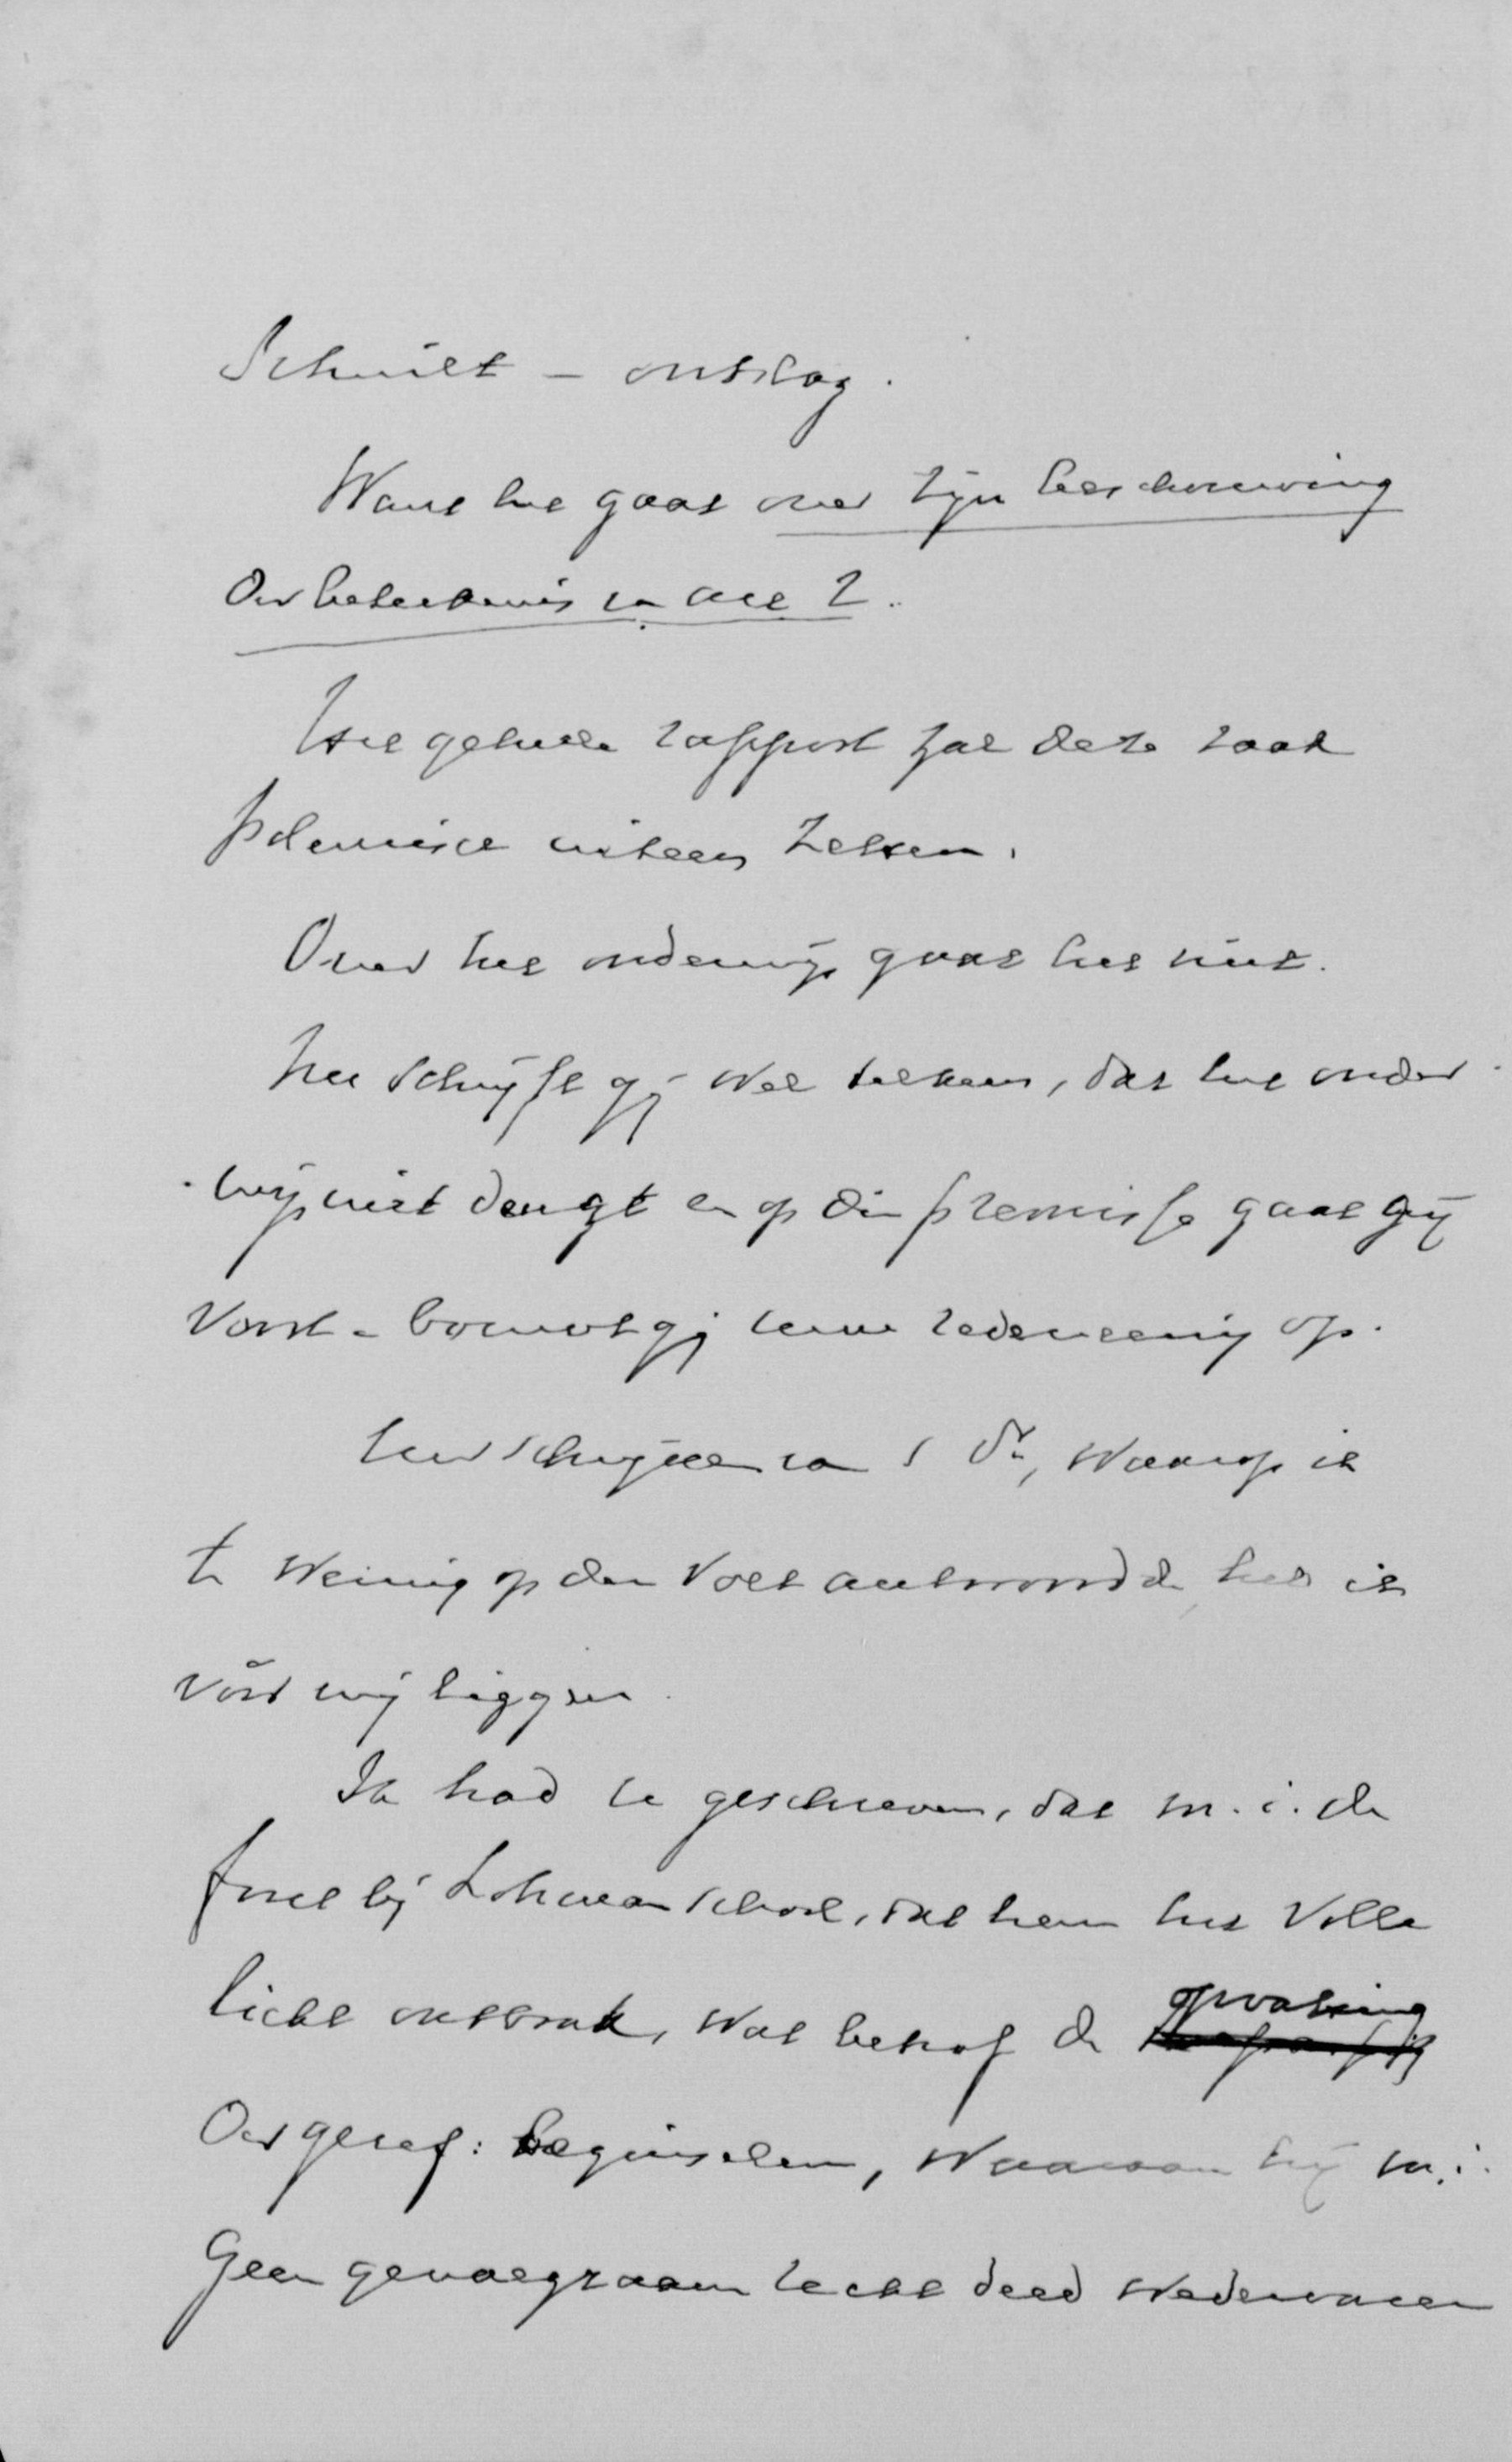 Schuilt - ontslag.
Want het gaat over zijn beschouwing
der beteekenis van Art 2.
Het geheele rapport zal deze zaak
polemisch uiteen zetten.
Over het onderwijs gaat het niet.
Nu schrijft gij wel telkens, dat het onder-
wijs niet deugt en op die praemisse gaat gij
voort - bouwt gij uwe redeneering op.
Uw schrijven van s Dr, waarop ik
te weinig op den voet antwoordde, heb ik
vóór mij liggen.
Ik had u geschreven, dat m.i. de
fout bij Lohman school, dat hem het volle
licht ontbrak, wat betrof de opvatting
der geref: beginselen, waaraan hij m.i.
geen genoegzaam recht deed wedervaren